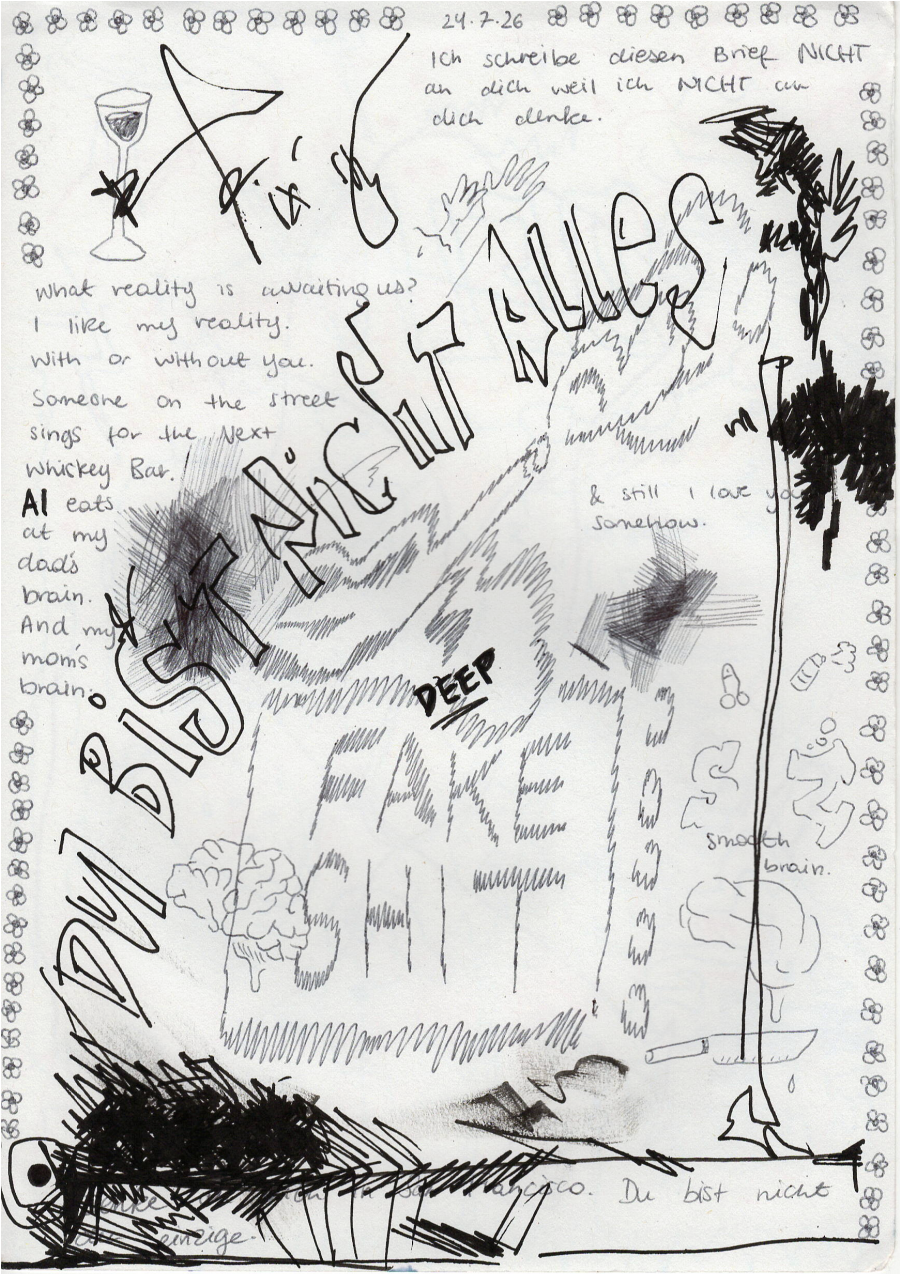 24.7.26
Ich schreibe diesen Brief NICHT
an dich weil ich NICHT an
dich denke.
DU BIST NICHT ALLES
What reality is awaiting us?
I like my reality.
With or without you.
Someone on the street
sings for the Next
Whiskey Bar.
AI eats
at my
dad's
brain.
And my
mom's
brain.
& still I love you
somehow.
DEEP
FAKE
SHIT
smooth
brain.
Du bist nicht
einzige.